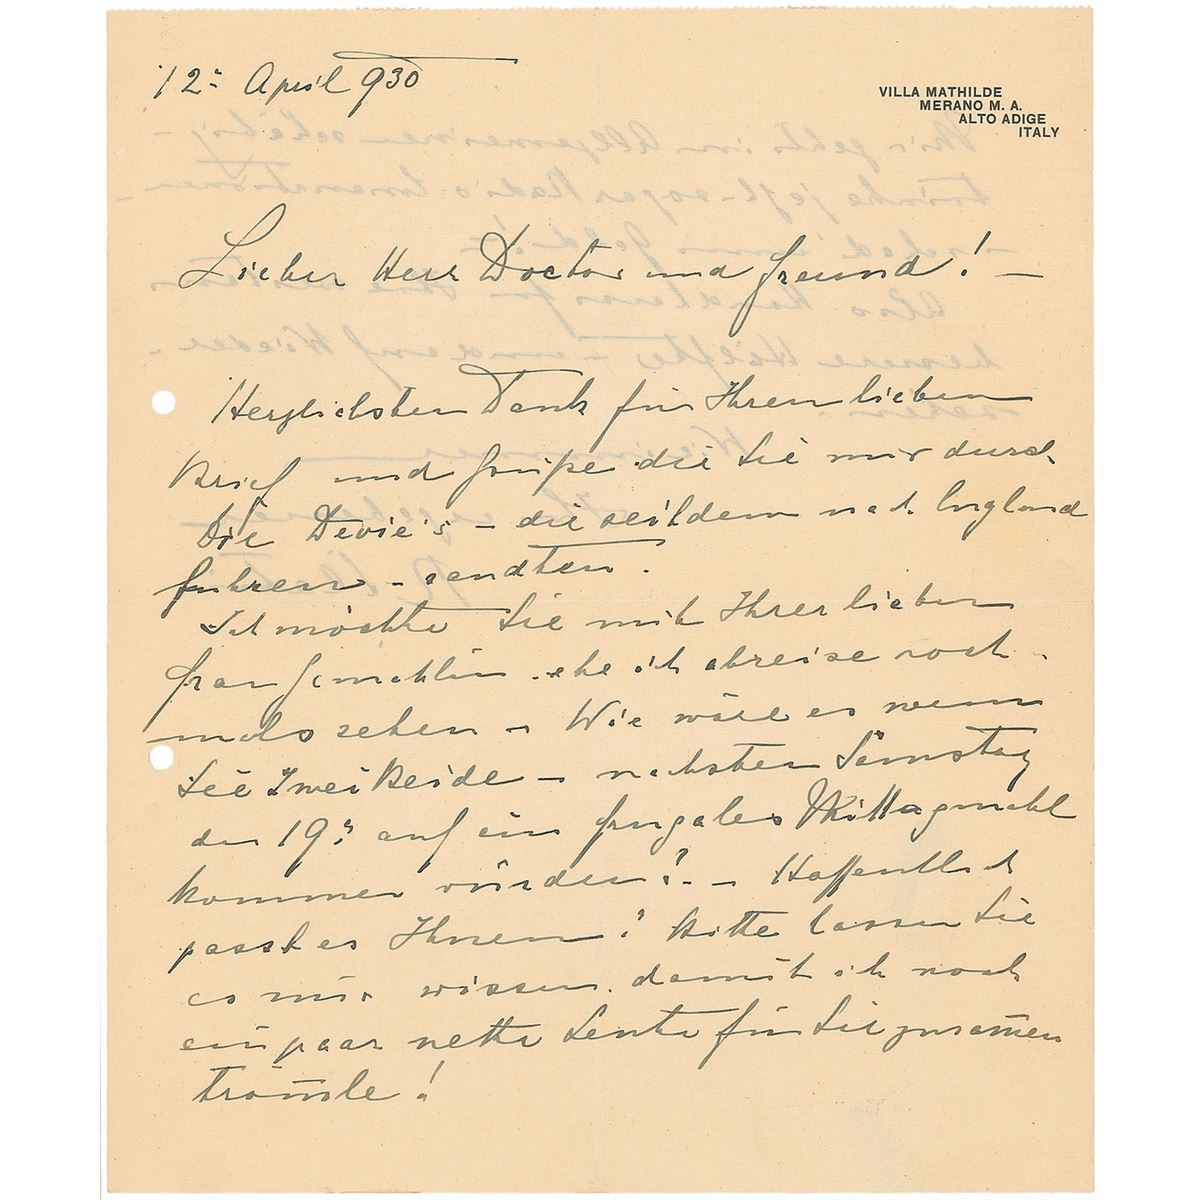 12. April 930
VILLA MATHILDE
MERANO M. A.
ALTO ADIGE
ITALY
Lieber Herr Doctor und Freund! –
Herzlichsten Dank für Ihren lieben
Brief und Grüße die Sie mir durch
die – die seitdem nach England
fuhren – sandten.
Ich möchte Sie mit Ihrer lieben
Frau Gemahlin – ehe ich abreise noch-
mals sehen – Wie wäre es wenn
Sie zwei Beide – nächsten Samstag
den 19. auf ein frugales Mittagmahl
kommen würden? – Hoffentlich
passt es Ihnen! Bitte lassen Sie
es mir wissen, damit ich noch
ein paar nette Leute für Sie zusam̅en
trom̅le!